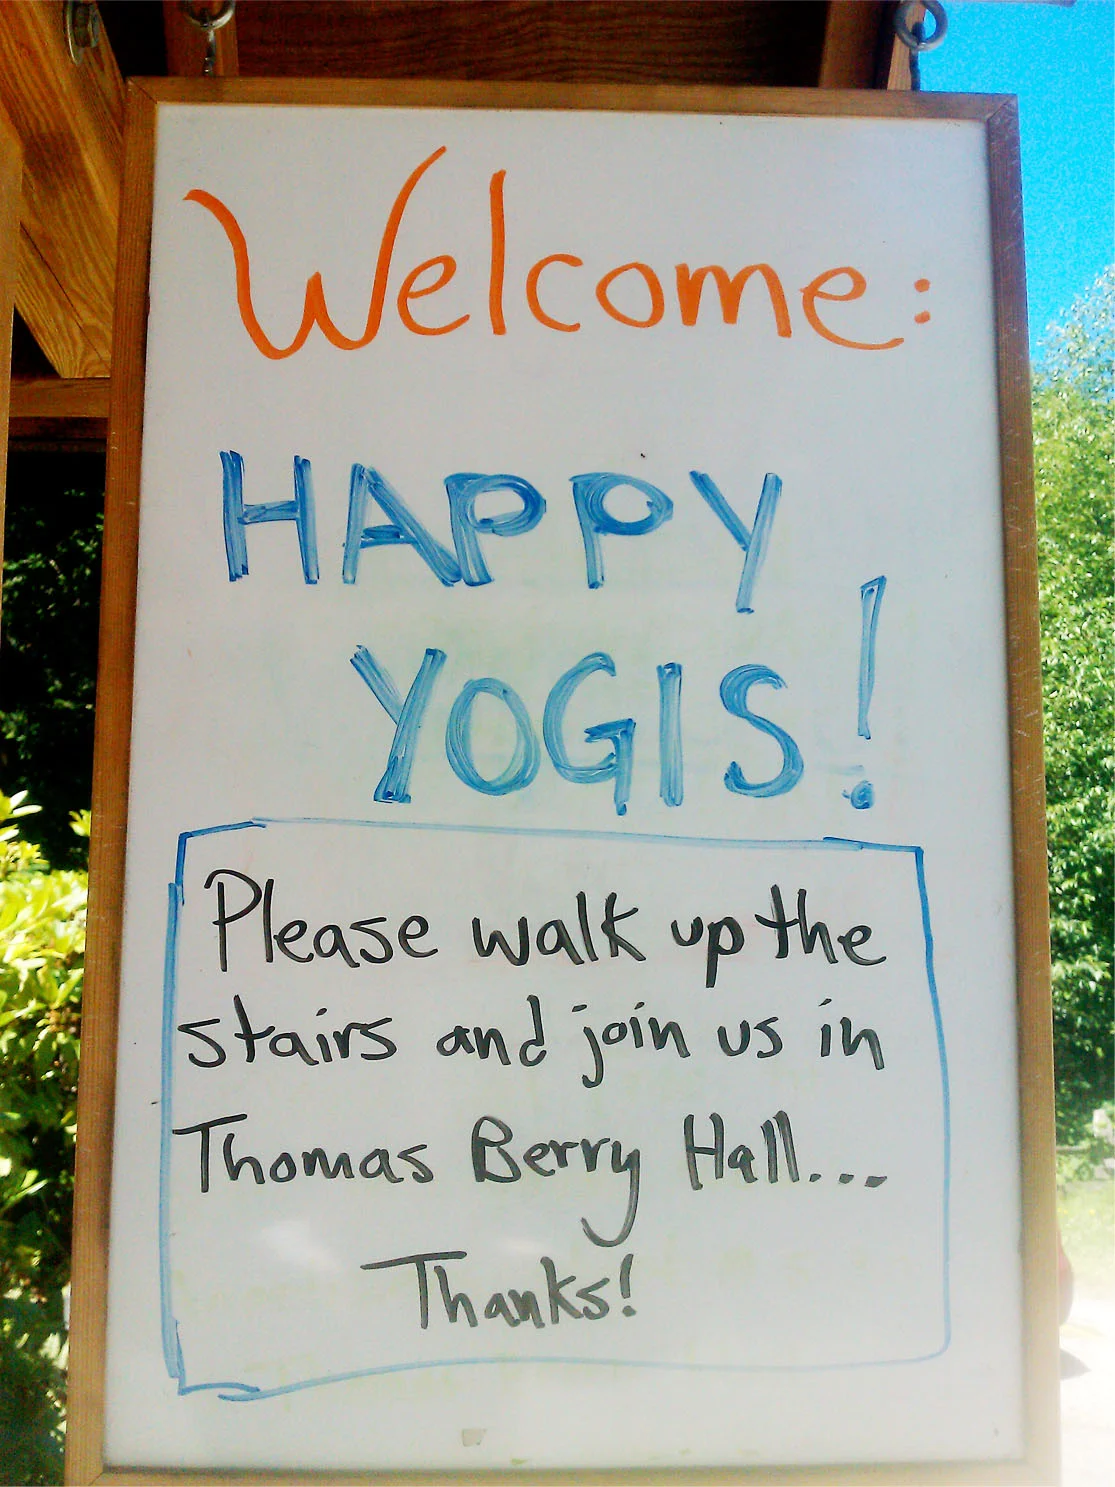 Welcome:
HAPPY
YOGIS!
Please walk up the
stairs and join us in
Thomas Berry Hall...
Thanks!